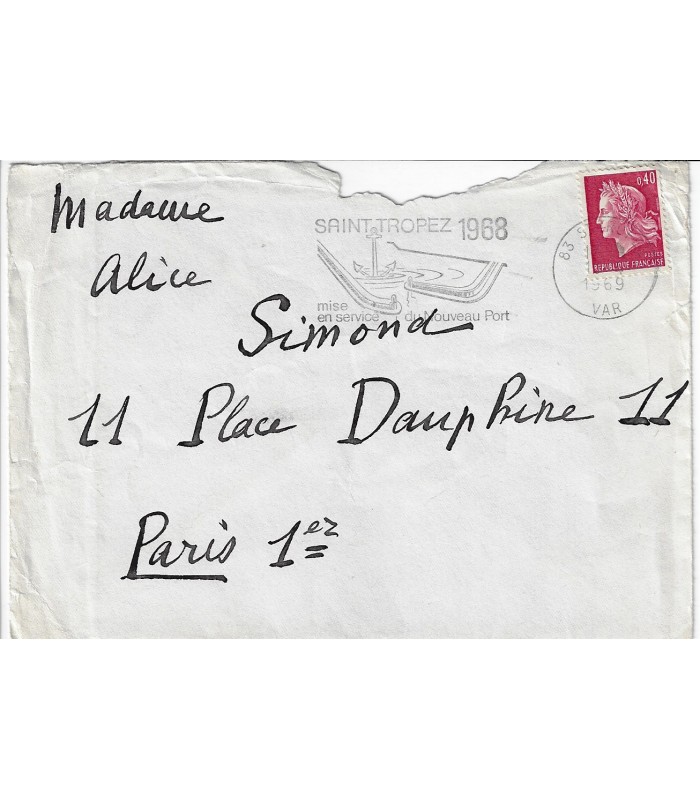 0,40
POSTES
REPUBLIQUE FRANÇAISE
SAINT TROPEZ 1968
mise
en service du Nouveau Port
83 S
1969
VAR
Madame
Alice
Simond
11 Place Dauphine 11
Paris 1er